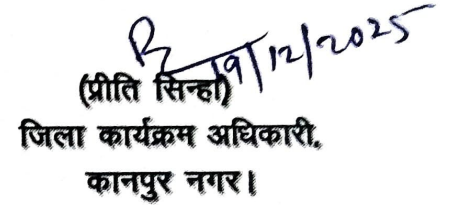 19/12/2025
(प्रीति सिन्हा)
जिला कार्यक्रम अधिकारी,
कानपुर नगर।